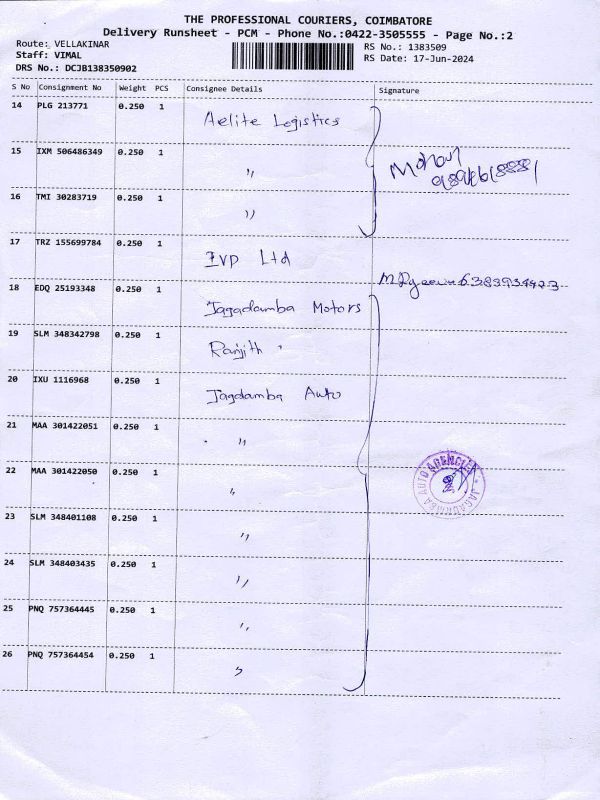 THE PROFESSIONAL COURIERS, COIMBATORE
Delivery Runsheet - PCM - Phone No.:0422-3505555 - Page No.:2
Route: VELLAKINAR
RS No.: 1383509
Staff: VIMAL
RS Date: 17-Jun-2024
DRS No.: DCJB138350902
S No Consignment No Weight PCS Consignee Details Signature
14 PLG 213771 0.250 1 Aelite Logistics
15 IXM 506486349 0.250 1 "
Mohan
16 TMI 30283719 0.250 1 "
17 TRZ 155699784 0.250 1 ZVP Ltd
18 EDQ 25193348 0.250 1 Jagadamba Motors
6383934423
19 SLM 348342798 0.250 1 Ranjith
20 IXU 1116968 0.250 1 Jagdamba Auto
21 MAA 301422051 0.250 1 "
22 MAA 301422050 0.250 1 "
JAGADAMBA AUTO AGENCIES
23 SLM 348401108 0.250 1 "
24 SLM 348403435 0.250 1 "
25 PNQ 757364445 0.250 1 "
26 PNQ 757364454 0.250 1 "